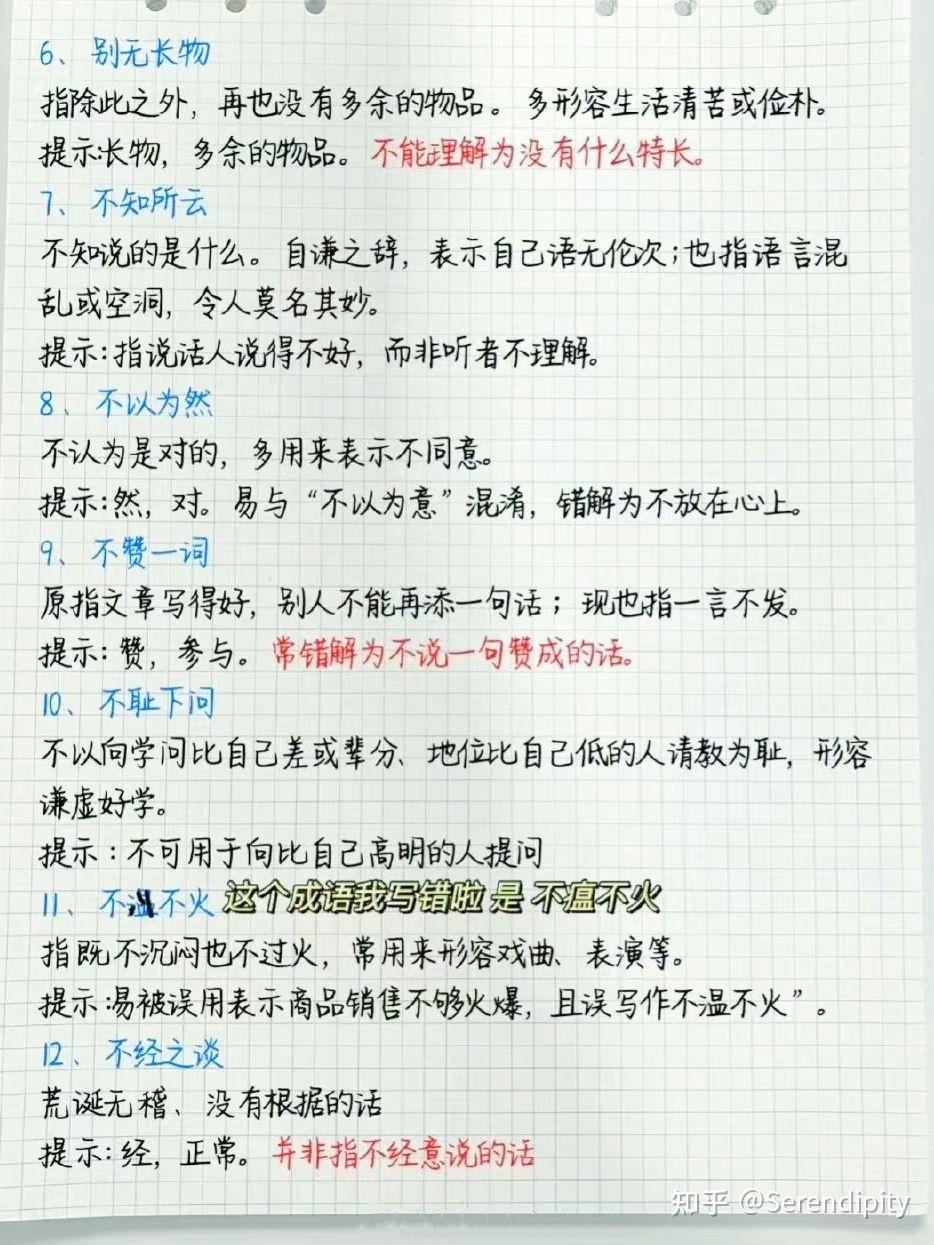 6、别无长物
指除此之外，再也没有多余的物品。多形容生活清苦或俭朴。
提示:长物，多余的物品。不能理解为没有什么特长。
7、不知所云
不知说的是什么。自谦之辞，表示自己语无伦次；也指语言混
乱或空洞，令人莫名其妙。
提示：指说话人说得不好，而非听者不理解。
8、不以为然
不认为是对的，多用来表示不同意。
提示：然，对。易与“不以为意”混淆，错解为不放在心上。
9、不赞一词
原指文章写得好，别人不能再添一句话；现也指一言不发。
提示：赞，参与。常错解为不说一句赞成的话。
10、不耻下问
不以向学问比自己差或辈分、地位比自己低的人请教为耻，形容
谦虚好学。
提示：不可用于向比自己高明的人提问
11、不温不火 这个成语我写错啦 是 不瘟不火
指既不沉闷也不过火，常用来形容戏曲、表演等。
提示：易被误用表示商品销售不够火爆，且误写作不温不火”。
12、不经之谈
荒诞无稽、没有根据的话
提示：经，正常。并非指不经意说的话
知乎 @Serendipity